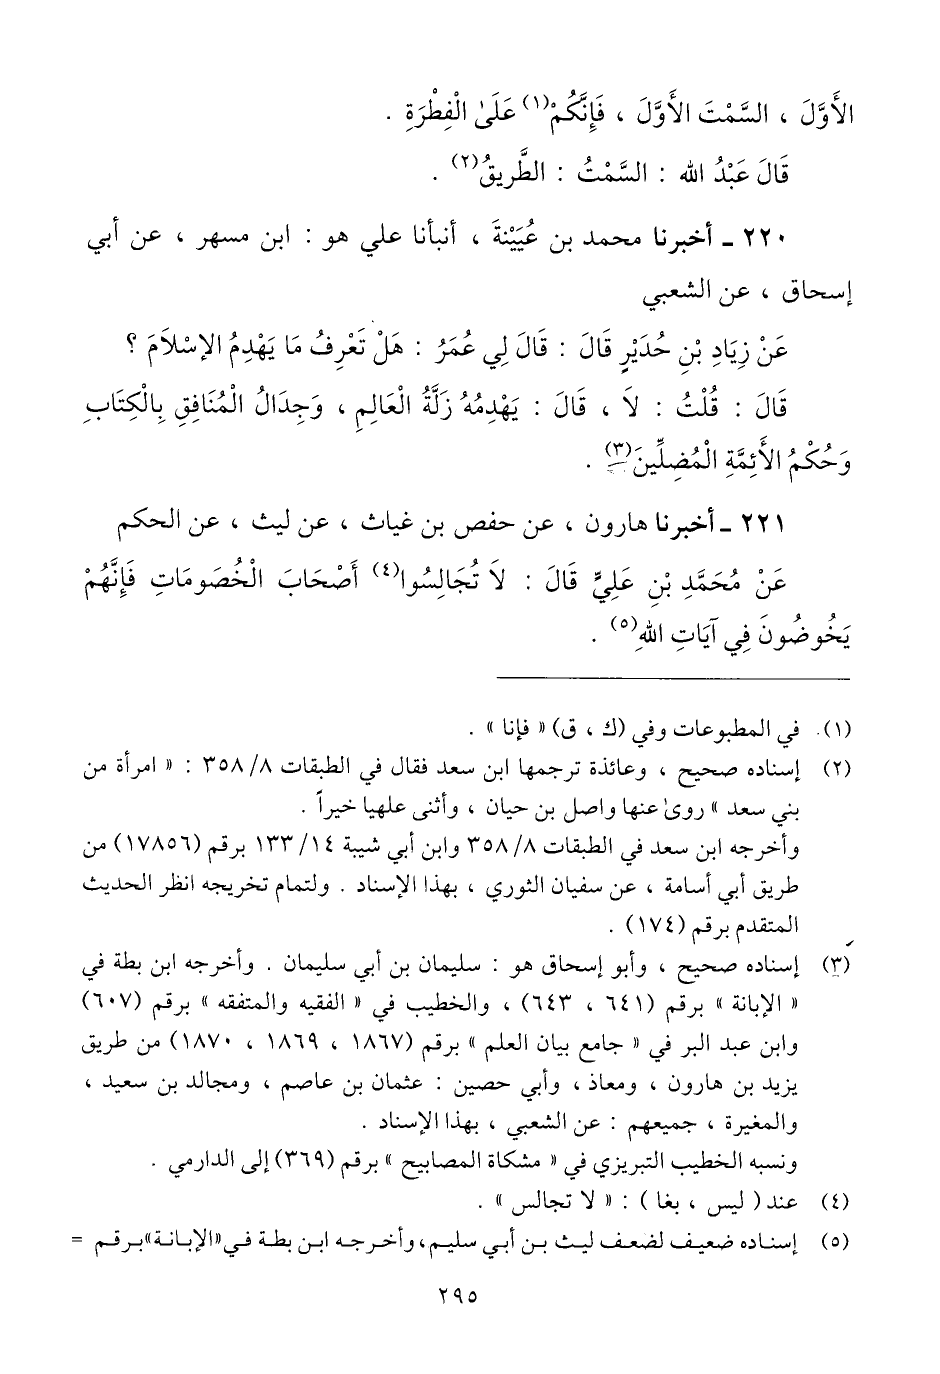 الأَوَّلَ ، السَّمْتَ الأَوَّلَ ، فَإِنَّكُمْ(١) عَلَىٰ الْفِطْرَةِ .
قَالَ عَبْدُ الله : السَّمْتُ : الطَّرِيقُ(٢) .
٢٢٠ ـ أخبرنا محمد بن عُيَيْنةَ ، أنبأنا علي هو : ابن مسهر ، عن أبي
إسحاق ، عن الشعبي
عَنْ زِيَادِ بْنِ حُدَيْرٍ قَالَ : قَالَ لِي عُمَرُ : هَلْ تَعْرِفُ مَا يَهْدِمُ الإِسْلاَمَ ؟
قَالَ : قُلْتُ : لاَ ، قَالَ : يَهْدِمُهُ زَلَّةُ الْعَالِمِ ، وَجِدَالُ الْمُنَافِقِ بِالْكِتَابِ
وَحُكْمُ الأَئِمَّةِ الْمُضِلِّينَ(٣) .
٢٢١ ـ أخبرنا هارون ، عن حفص بن غياث ، عن ليث ، عن الحكم
عَنْ مُحَمَّدِ بْنِ عَلِيٍّ قَالَ : لاَ تُجَالِسُوا(٤) أَصْحَابَ الْخُصُومَاتِ فَإِنَّهُمْ
يَخُوضُونَ فِي آيَاتِ اللهِ(٥) .
(١) في المطبوعات وفي (ك ، ق) « فإنا » .
(٢) إسناده صحيح ، وعائذة ترجمها ابن سعد فقال في الطبقات ٨/ ٣٥٨ : « امرأة من
بني سعد » روىٰ عنها واصل بن حيان ، وأثنى علهيا خيراً .
وأخرجه ابن سعد في الطبقات ٨/ ٣٥٨ وابن أبي شيبة ١٤/ ١٣٣ برقم (١٧٨٥٦) من
طريق أبي أسامة ، عن سفيان الثوري ، بهذا الإسناد . ولتمام تخريجه انظر الحديث
المتقدم برقم (١٧٤) .
(٣) إسناده صحيح ، وأبو إسحاق هو : سليمان بن أبي سليمان . وأخرجه ابن بطة في
« الإبانة » برقم (٦٤١ ، ٦٤٣) ، والخطيب في « الفقيه والمتفقه » برقم (٦٠٧)
وابن عبد البر في « جامع بيان العلم » برقم (١٨٦٧ ، ١٨٦٩ ، ١٨٧٠) من طريق
يزيد بن هارون ، ومعاذ ، وأبي حصين : عثمان بن عاصم ، ومجالد بن سعيد ،
والمغيرة ، جميعهم : عن الشعبي ، بهذا الإسناد .
ونسبه الخطيب التبريزي في « مشكاة المصابيح » برقم (٣٦٩) إلى الدارمي .
(٤) عند ( ليس ، بغا ) : « لا تجالس » .
(٥) إسناده ضعيف لضعف ليث بن أبي سليم، وأخرجه ابن بطة في «الإبانة» برقم =
٢٩٥